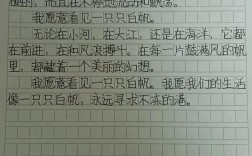 我愿意看见一只只白帆。
无论在小河，在大江，还是在海洋，它都
在前进，在和风浪搏斗。在每一片鼓满风的帆
里，都藏着一个美丽的幻想。
我愿意看见一只只白帆。我愿我们的生活
像一只只白帆，永远寻求不冻的港。